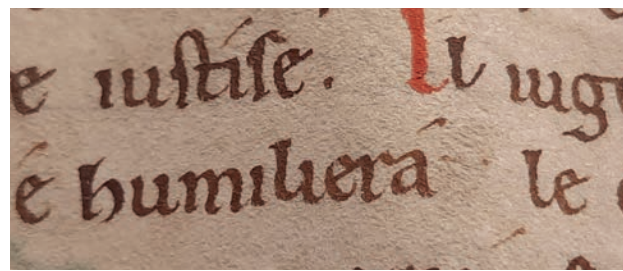 e iustise. Il iuge
é humilierá le